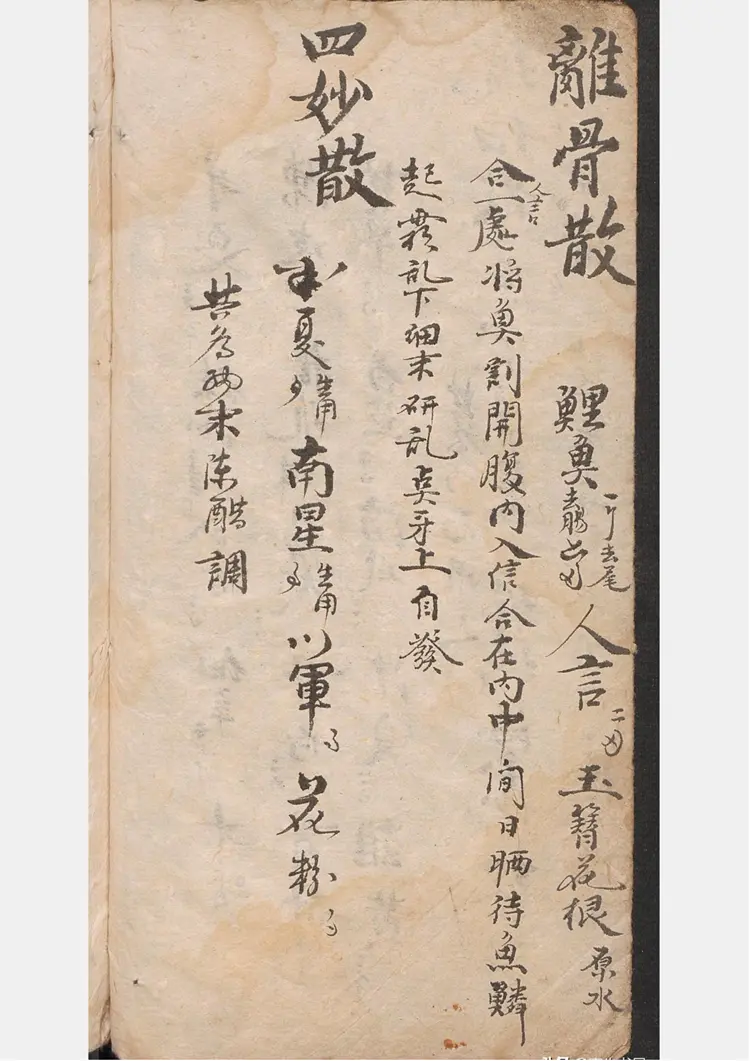 離骨散
鯉魚一斤去尾去腸 人言二 玉簪花根原水
合一處将魚割開腹内入信合在内中间日晒待魚鱗
人言
起霜乱下细末研乱点牙上自發
四妙散
半夏生用 南星生用 川軍 花粉
共為细末陈醋調